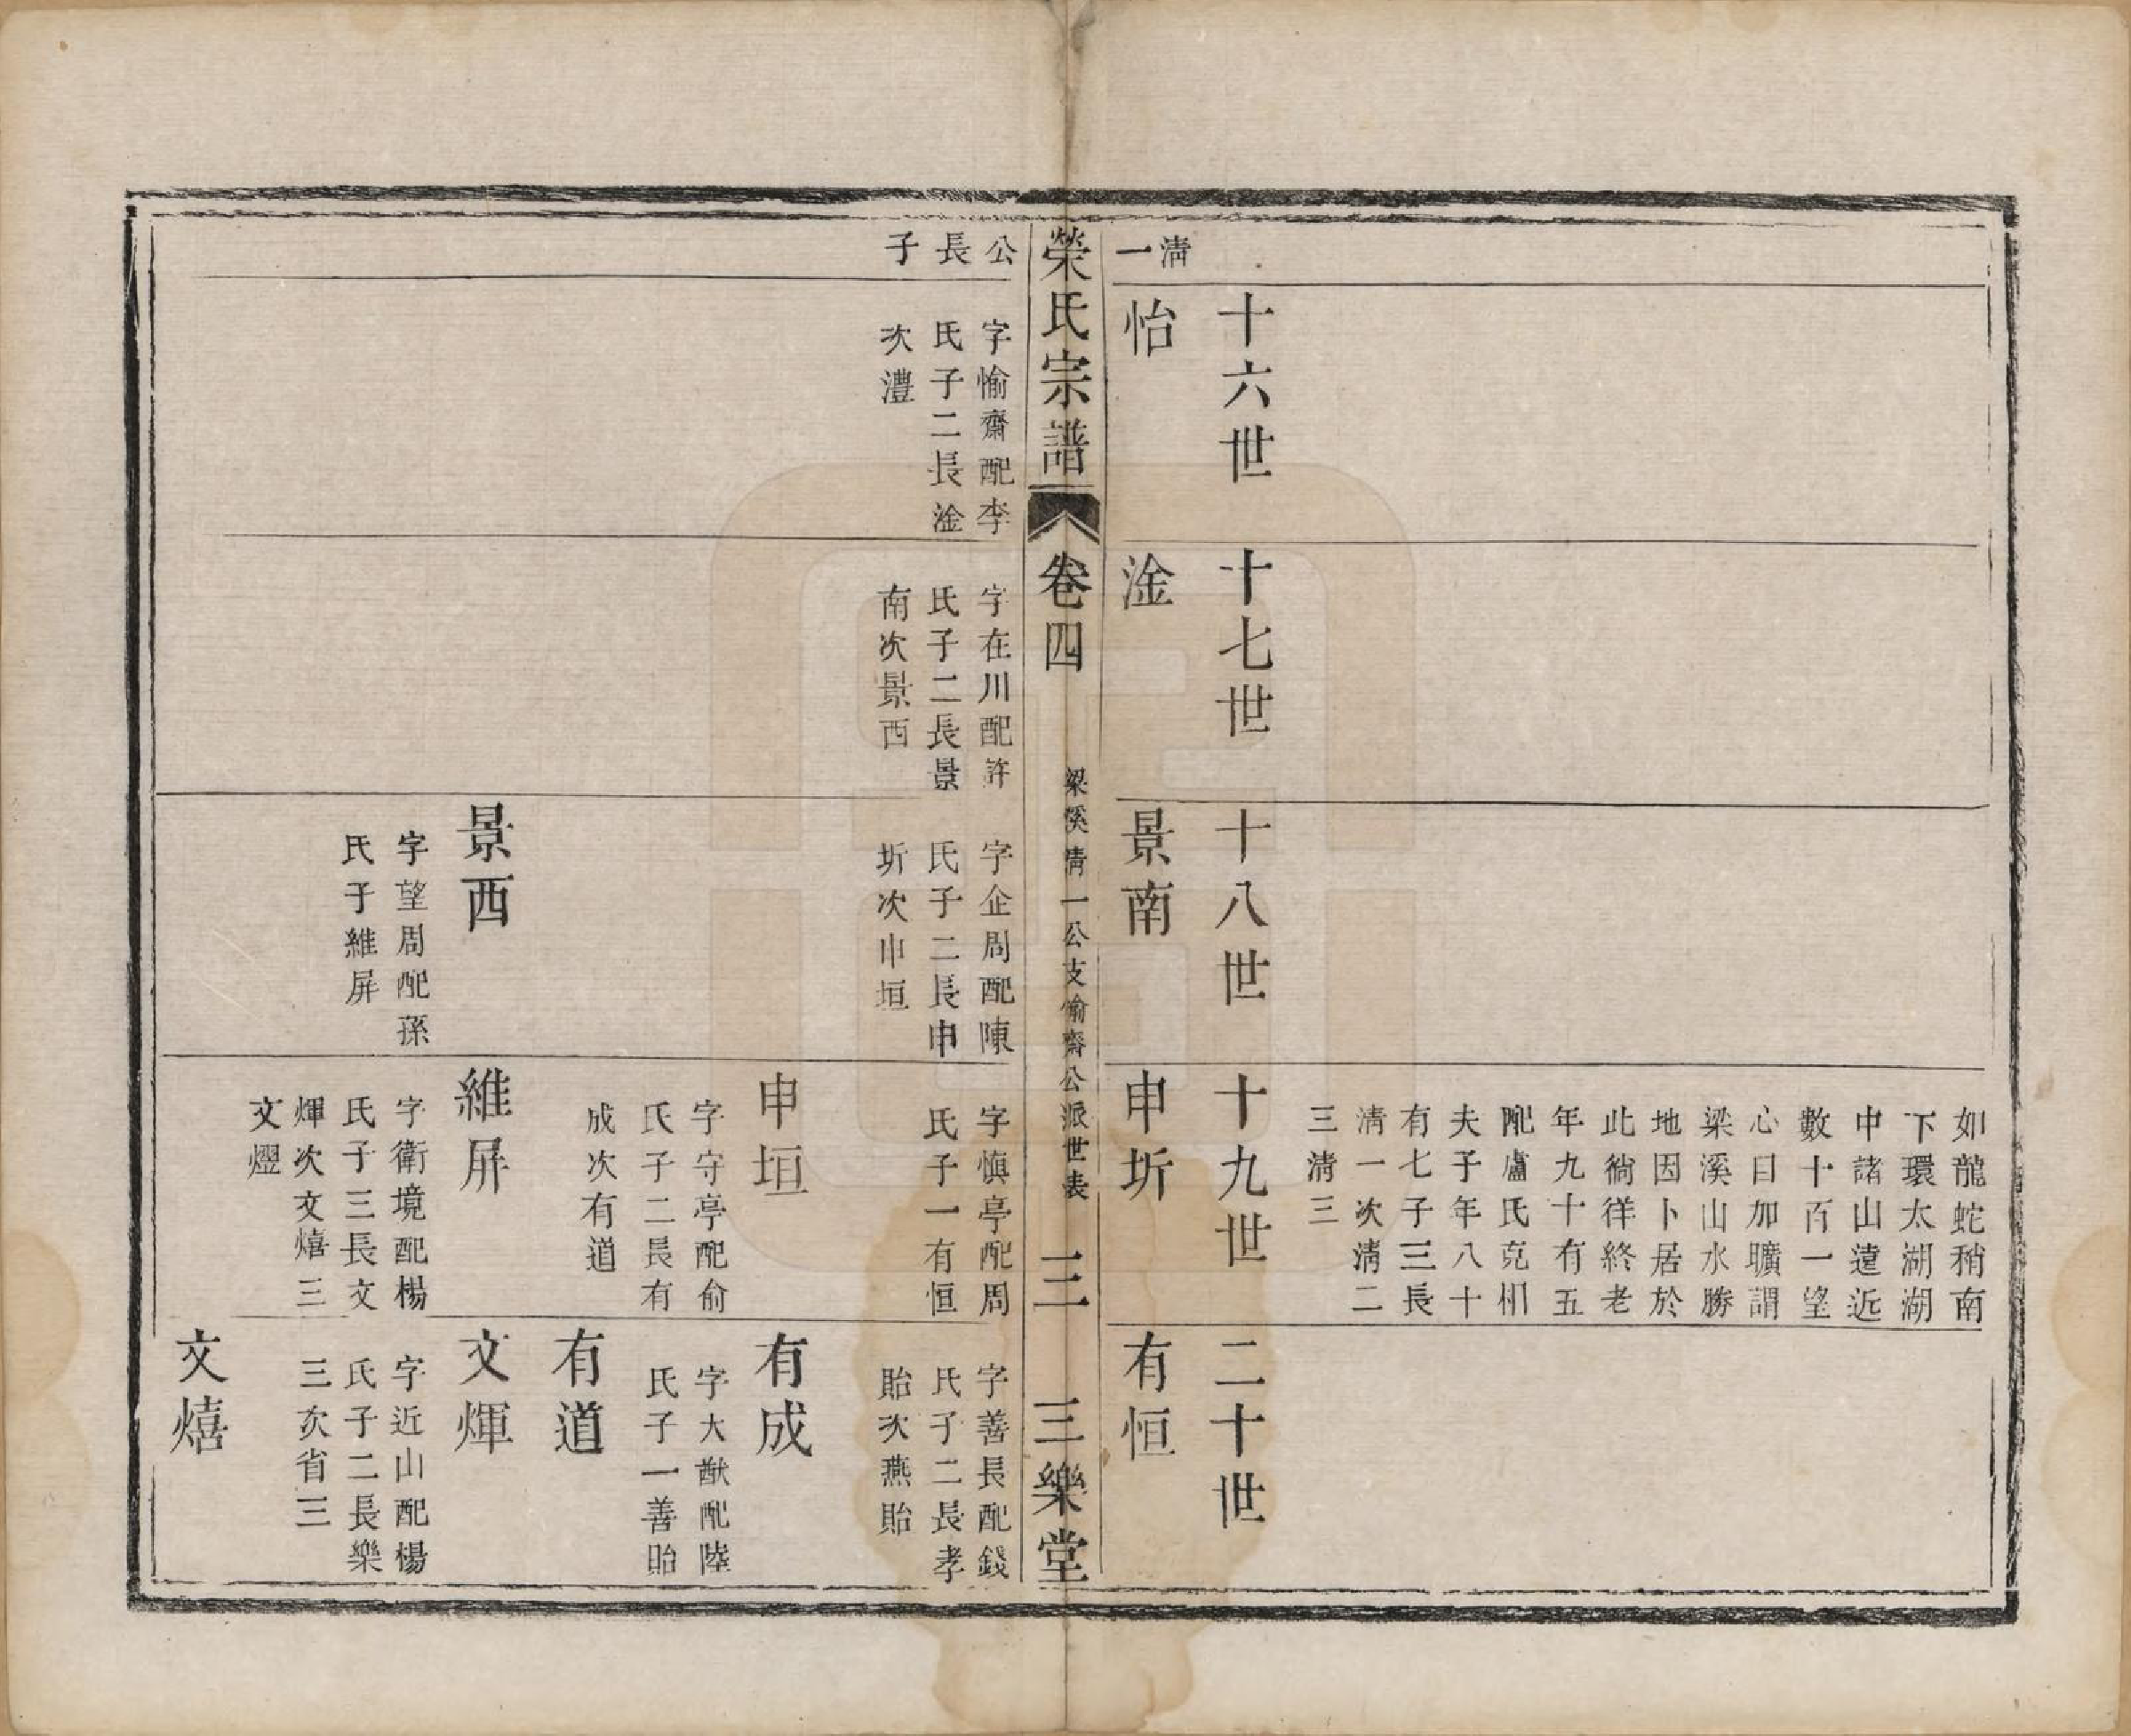 如龍蛇稍南
下環太湖湖
中諸山遠近
數十百一望
心目加曠謂
梁溪山水勝
地因卜居於
此徜徉終老
年九十有五
配盧氏克相
夫子年八十
有七子三長
清一次清二
三清三
十六世
十七世
十八世
十九世
二十世
清一
怡
淦
景南
申圻
有恒
榮氏宗譜
卷四
梁溪清一公支愉齋公派世表
三
三樂堂
公長子
字愉齋配李
氏子二長淦
次澧
字在川配許
氏子二長景
南次景西
字企周配陳
氏子二長申
圻次申垣
字慎亭配周
氏子一有恒
字善長配錢
氏子二長孝
貽次燕貽
申垣
字守亭配俞
氏子二長有
成次有道
有成
字大猷配陸
氏子一善貽
有道
景西
字望周配孫
氏子維屏
維屏
字衛境配楊
氏子三長文
煇次文熺三
文㷉
文煇
字近山配楊
氏子二長樂
三次省三
文熺